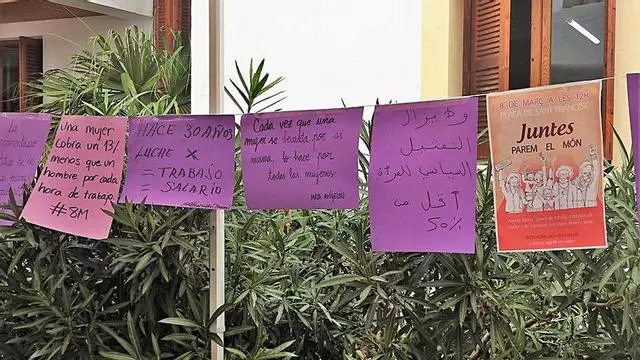 Una mujer
cobra un 13%
menos que un
hombre por cada
hora de trabajo
#8M
HACE 30 AÑOS
LUCHE X
= TRABAJO
= SALARIO
Cada vez que una
mujer se
por sí
misma, lo hace por
todas las mujeres
MAYA ANGELOU
ولا يزال
التمثيل
السياسي للمرأة
أقل من
50%
8 DE MARÇ A LES 12H
PLAÇA DE SANT FRANCESC
Juntes
PAREM EL MÓN